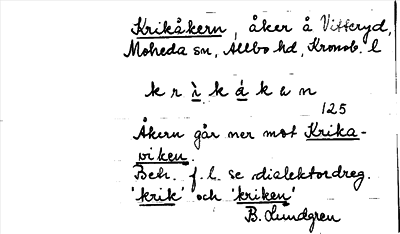 Krikåkern, åker å Vitteryd,
Moheda sn, Allbo hd, Kronob. l
k r ì k á k a n
125
Åkern går ner mot Krika-
viken.
Beh. f.l. se dialektordreg.
'krik' och 'kriken'
B. Lundgren